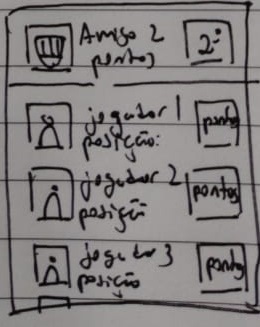 Amigo 2
pontos
2º
jogador 1
posição:
ponto
jogador 2
posição
pontos
jogador 3
posição
ponto